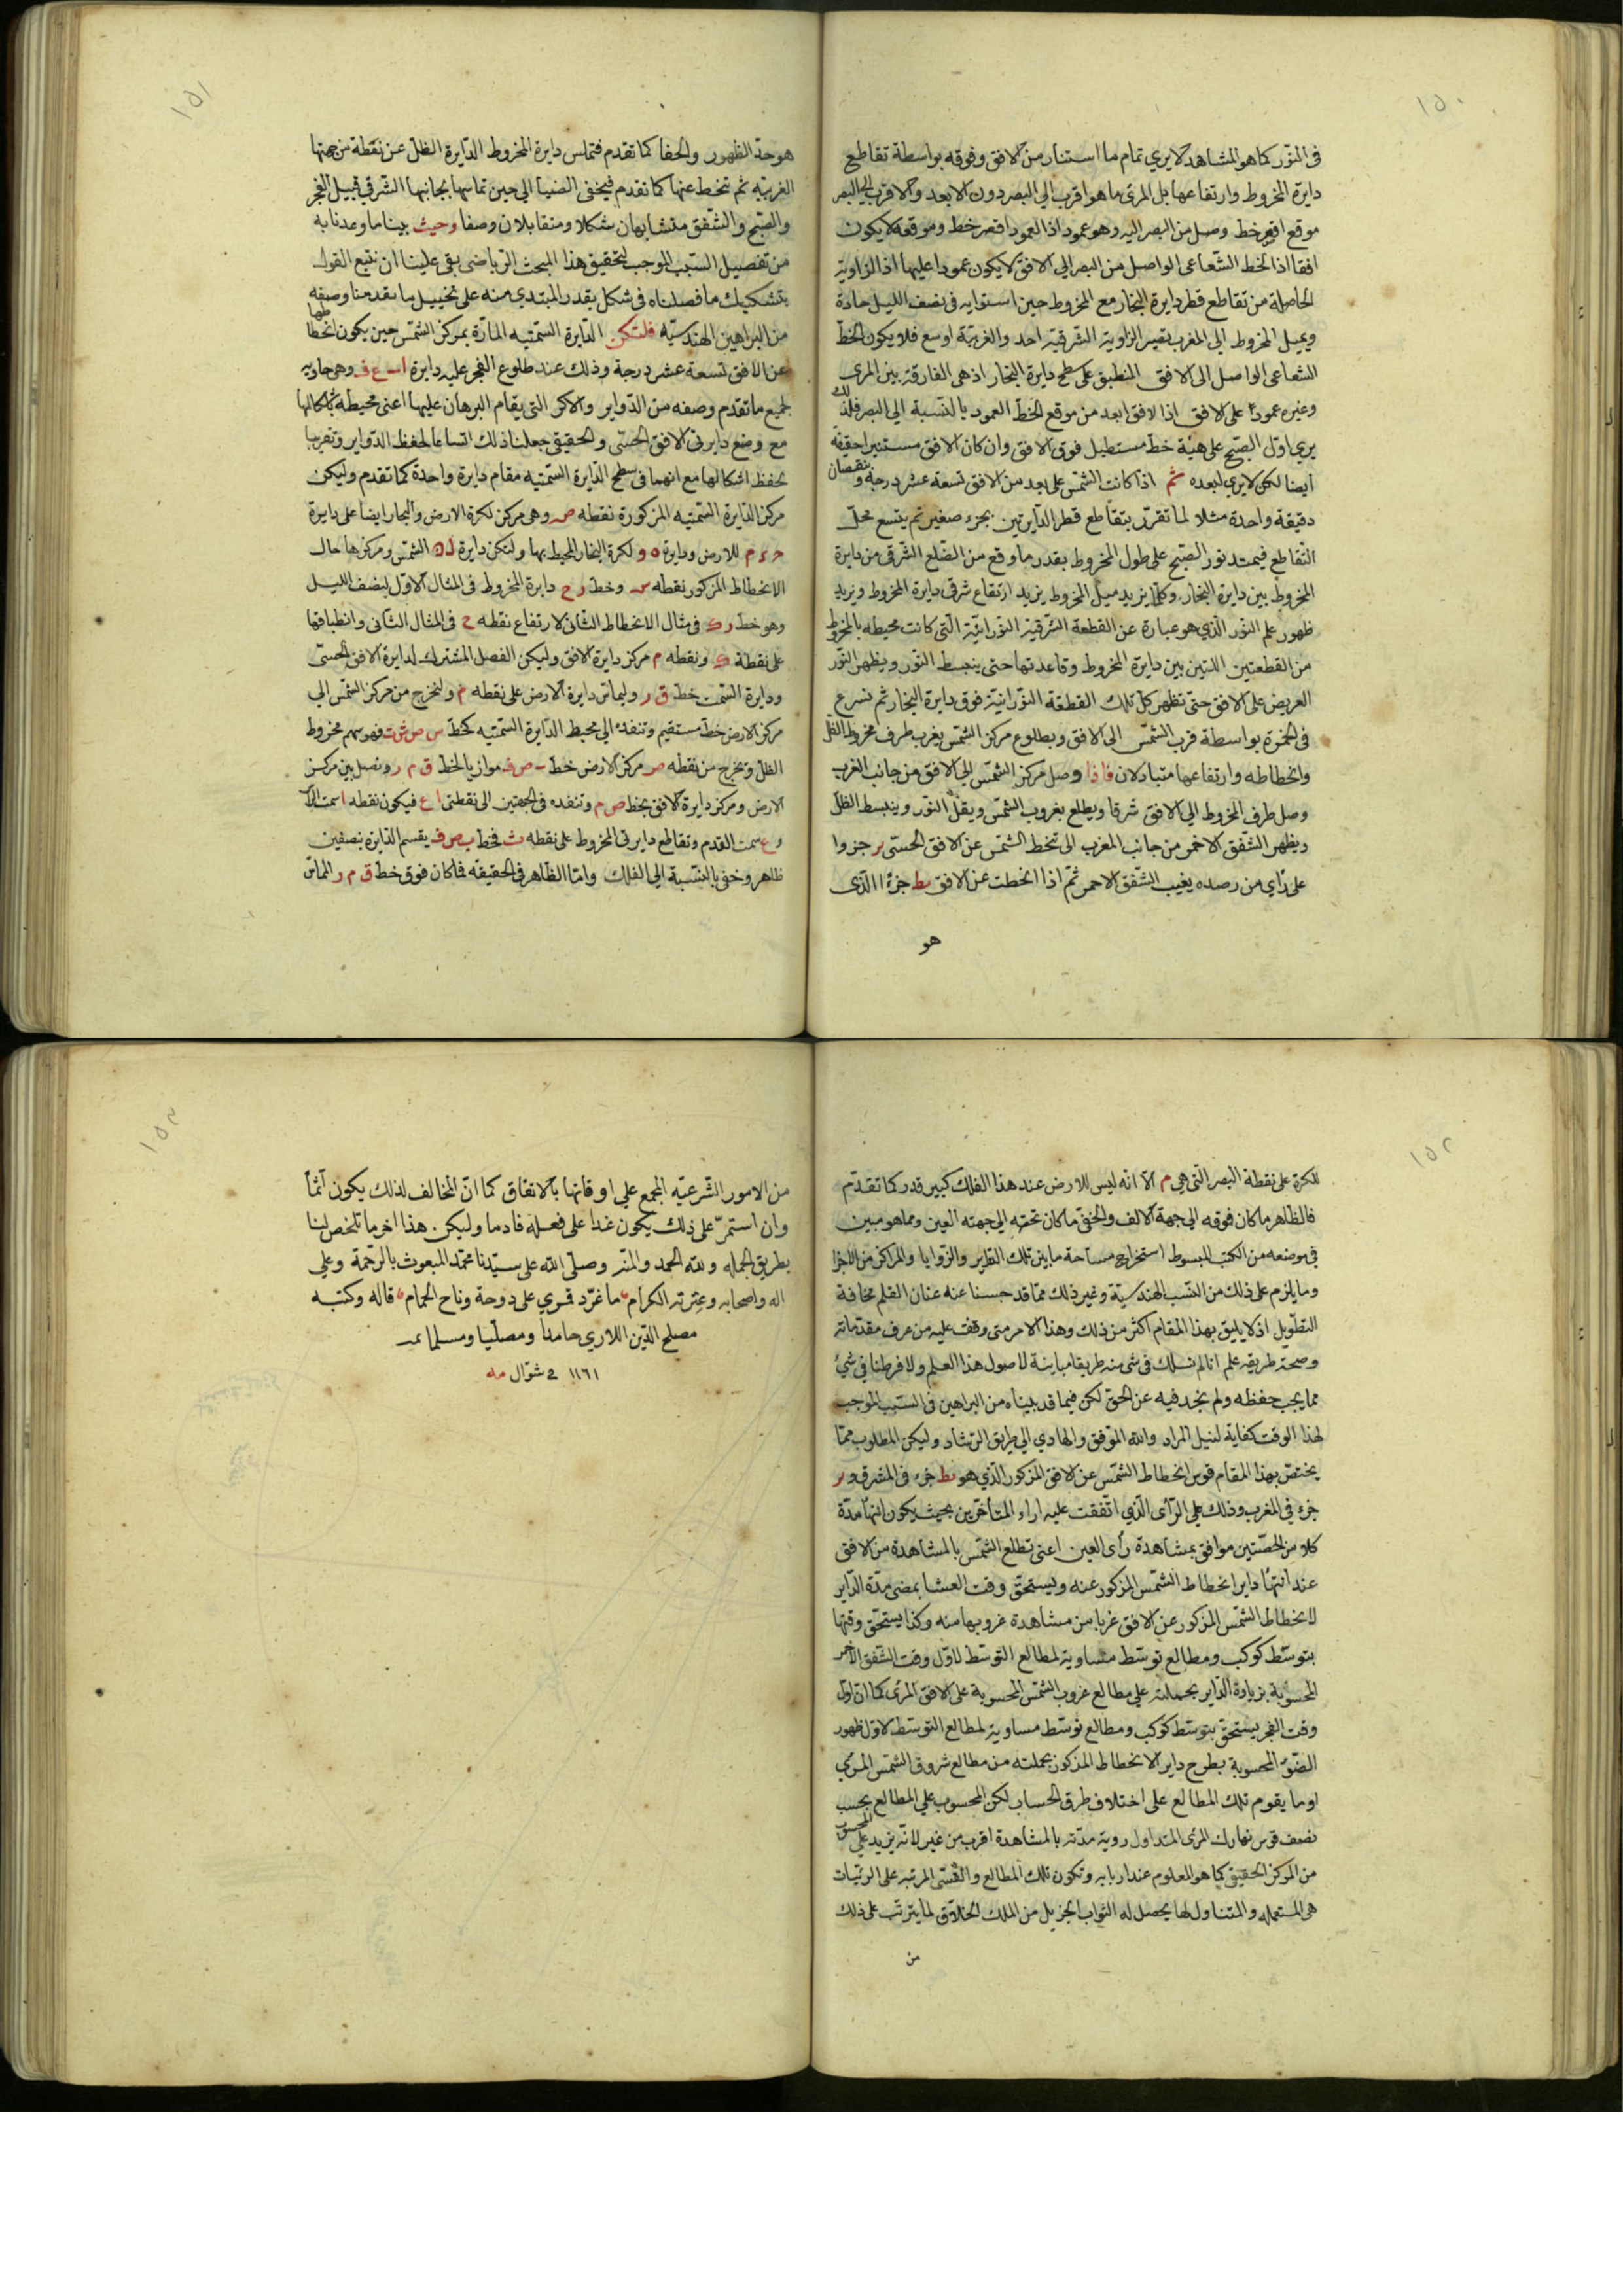 ١٥٠
في النور كما هو المشاهد لا يري تمام ما استنار من الافق وفوقه بواسطة تقاطع
دايرة المخروط وارتفاعها بل المرئ ما هو اقرب الي البصر دون الابعد والاقرب الي البصر
موقع اقصر خط وصل من البصر اليه وهو عمود اذ العمود اقصر خط وموقعه لا يكون
افقا اذ الخط الشعاعي الواصل من البصر الي الافق لا يكون عمودا عليها اذ الزاوية
الحاصلة من تقاطع قطر دايرة البخار مع المخروط حين استوايه في نصف الليل حادة
ويميل المخروط الي المغرب تصير الزاوية الشرقية احد والغربية اوسع فلا يكون الخط
الشعاعي الواصل الى الافق المنطبق على سطح دايرة البخار اذ هي الفارقة بين المرئ
وغيره عمودا على الافق اذا الافق ابعد من موقع الخط العمود بالنسبة الي البصر فلذلك
يري اول الصبح على هيئة خط مستطيل فوق الافق وان كان الافق مستنيرا حقيقة
ايضا لكن لا يري لبعده ثم اذا كانت الشمس على بعد من الافق تسعة عشر درجة ونقصان
دقيقة واحدة مثلا لما تقرر يتقاطع قطر الدايرتين بجزء صغير ثم يتسع محل
التقاطع فيمتد نور الصبح على طول المخروط بقدر ما وقع من الضلع الشرقي من دايرة
المخروط بين دايرة البخار وكلما يزيد ميل المخروط يزيد ارتفاع شرقي دايرة المخروط ويزيد
ظهور علم النور الذي هو عبارة عن القطعة الشرقية النورانية التي كانت محيطة بالمخروط
من القطعتين اللتين بين دايرة المخروط وقاعدتها حتى ينبسط النور ويظهر النور
العريض على الافق حتى تظهر كل تلك القطعة النورانية فوق دايرة البخار ثم تسرع
في الحمرة بواسطة قرب الشمس الى الافق وبطلوع مركز الشمس يغرب طرف مخروط الظل
وانحطاطه وارتفاعها متبادلان فاذا وصل مركز الشمس الي الافق من جانب الغرب
وصل طرف المخروط الي الافق شرقا ويطلع بغروب الشمس ويقل النور وينبسط الظل
ويظهر الشفق الاحمر من جانب المغرب الى تحط الشمس عن الافق الحسي جزوا
على رأي من رصده يغيب الشفق الاحمر ثم اذا انحطت عن الافق يط جزءا الذي
هو
١٥١
هو حد الظهور والخفا كما تقدم فتماس دايرة المخروط الدايرة الظل عن نقطة من جهتها
الغربيه ثم تنحط عنها كما تقدم فيختفي الضيا الي حين تماسها بجانبها الشرقي قبيل الفجر
والصبح والشفق متشابهان شكلا ومتقابلان وصفا وحيث بينا ما وعدنا به
من تفصيل السبب الموجب لتحقيق هذا المبحث الرياضي بقي علينا ان نتبع القول
بتشكيك ما فصلناه في شكل يقدر المبتدي منه على تخييل ما تقدمنا وصفه
من البراهين الهندسيه فلتكن الدايرة السمتيه المارة بمركز الشمس حين يكون انحطاطها
عن الافق تسعة عشر درجة وذلك عند طلوع الفجر عليه دايرة ا ب ع ف وهي حاويه
لجميع ما تقدم وصفه من الدواير والاكر التي يقام البرهان عليها اعني محيطة باشكالها
مع وضع دايرتي الافق الحسي والحقيقي جعلنا ذلك اتساعا لحفظ الدواير وتقريبا
بحفظ اشكالها مع انهما في سطح الدايرة السمتيه مقام دايرة واحدة كما تقدم وليكن
مركز الدايرة السمتيه المذكورة نقطه ص وهي مركز لكرة الارض والبخار ايضا على دايرة
للارض ودايرة ه و لكرة البخار المحيط بها ولتكن دايرة الشمس ومركزها حال
الانحطاط المذكور نقطه س وخط ر ح دايرة المخروط في المثال الاول لنصف الليل
وهو خط ر ك في مثال الانحطاط الثاني لارتفاع نقطه ح في المثال الثاني وانطباقها
على نقطة ونقطه م مركز دايرة الافق وليكن الفصل المشترك لدايرة الافق الحسي
ودايرة السمت خط ق ر وليماس دايرة الارض على نقطه م ولنخرج من مركز الشمس الي
مركز الارض خط مستقيم وتنفذه الي محيط الدايرة السمتيه كخط س ص ش ت فهو سهم مخروط
الظل ونخرج من نقطه ص مركز الارض خط ب ص ف موازيا لخط ق م ر ونصل بين مركز
الارض ومركز دايرة الافق بخط ص م وتنفذه في الجهتين الى نقطتي ا ع فيكون نقطه ا سمت الراس
و ع سمت القدم وتقاطع دايرتي المخروط على نقطه ث فخط ب ص ف يقسم الدايرة بنصفين
ظاهر وخفي بالنسبة الي الفلك واما الظاهر في الحقيقه فما كان فوق خط ق م ر المماس
١٥٢
للكرة على نقطة البصر التي هي م الا انه ليس للارض عند هذا الفلك كبير قدر كما تقدم
فالظاهر ما كان فوقه الي جهة الالف والخفي ما كان تحته الي جهته العين ومما هو مبين
في موضعه من الكتب المبسوط استخراج مساحة ما بين تلك والزوايا والمراكز من الاجزا
وما يلزم على ذلك من النسب الهندسية وغير ذلك مما قد حبسنا عنه عنان القلم مخافة
التطويل اذ لا يليق بهذا المقام اكثر من ذلك وهذا الامر متى وقف عليه من عرف مقدماته
وصحة طريقه علم انا لم نسلك في شي منه طريقا مباينة لاصول هذا العلم ولا فرطنا في شيء
مما يجب حفظه ولم نجد فيه عن الحق لكن فيما قد بيناه من البراهين في السبب الموجب
لهذا الوقت كفاية لنيل المراد والله الموفق والهادي الي طريق الرشاد وليكن المطلوب مما
يختص بهذا المقام قوس انحطاط الشمس عن الافق المذكور الذي هو يط جزء في المشرق و
جزء في المغرب وذلك علي الرأي الذي اتفقت عليه اراء المتأخرين بحيث يكون انتهاء مدة
كلا من الحصتين موافق بمشاهدة رأى العين اعني تطلع الشمس بالمشاهدة من الافق
عند انتهاء داير انحطاط الشمس المذكور عنه ويستحق وقت العشا بمضي مدة الداير
لانحطاط الشمس المذكور عن الافق غربا من مشاهدة غروبها منه وكذا يستحق وقتها
بتوسط كوكب ومطالع توسط مساوية لمطالع التوسط لاول وقت الشفق الاحمر
المحسوبة بزيادة الداير بجملته علي مطالع غروب الشمس المحسوبة على الافق المرئ كما ان اول
وقت الفجر يستحق بتوسط كوكب ومطالع توسط مساوية لمطالع التوسط لاول ظهور
الضوء المحسوبة بطرح داير الانحطاط المذكور بجملته من مطالع شروق الشمس المرئي
او ما يقوم تلك المطالع على اختلاف طرق الحساب لكن المحسوب علي المطالع بحسب
نصف قوس نهارك المرئ المتداول روية مدته بالمشاهدة اقرب من غير لانه يزيد علي المحسوب
من المركز الحقيقي كما هو المعلوم عند اربابه وتكون تلك المطالع والقسي المرتبه على الرتبات
هي المستعمله والمتناول لها يحصل له الثواب الجزيل من الملك الخلاق لما يترتب على ذلك
من
١٥٣
من الامور الشرعيه المجمع علي اوقاتها بالاتفاق كما ان المخالف لذلك يكون آثما
وان استمر على ذلك يكون غدا على فعله نادما وليكن هذا اخر ما تلخص لنا
بطريق الجمله ولله الحمد والمنه وصلى الله على سيدنا محمد المبعوث بالرحمة وعلي
اله واصحابه وعترته الكرام ما غرد قمري على دوحة وناح الحمام قاله وكتبه
مصلح الدين اللاري حامدا ومصليا ومسلما
١١٦١ في شوال